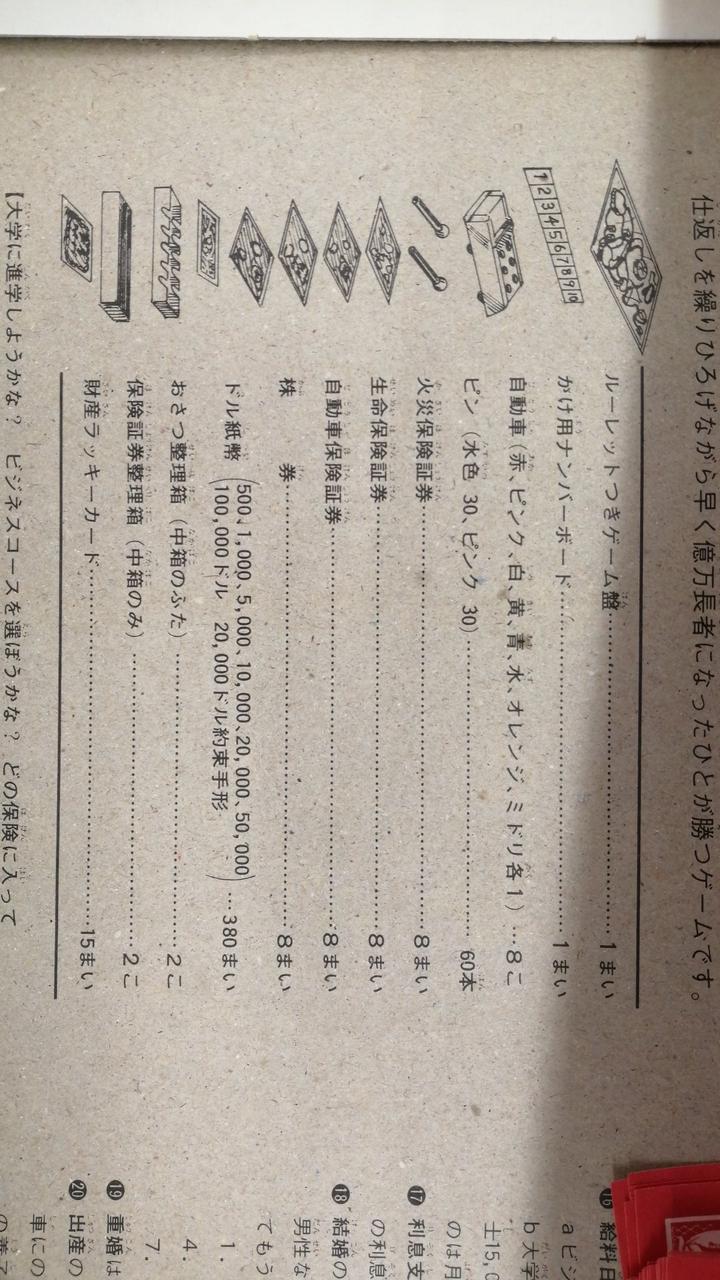 仕返しを繰りひろげながら早く億万長者になったひとが勝つゲームです。
ルーレットつきゲーム盤……1まい
かけ用ナンバーボード……1まい
自動車（赤、ピンク、白、黄、青、水、オレンジ、ミドリ各1）…8こ
ピン（水色 30、ピンク 30）……60本
火災保険証券……8まい
生命保険証券……8まい
自動車保険証券……8まい
株 券……8まい
ドル紙幣（500、1,000、5,000、10,000、20,000、50,000
100,000ドル 20,000ドル約束手形）…380まい
おさつ整理箱（中箱のふた）……2こ
保険証券整理箱（中箱のみ）……2こ
財産ラッキーカード……15まい
【大学に進学しようかな？ ビジネスコースを選ぼうかな？ どの保険に入って
1 2 3 4 5 6 7 8 9 10
⓰ 給料日
a ビジ
b 大学
士15,0
のは月
⓱ 利息支
の利息
⓲ 結婚の
男性な
てもう
1.
4.
7.
⓳ 重婚は
⓴ 出産の
車にの